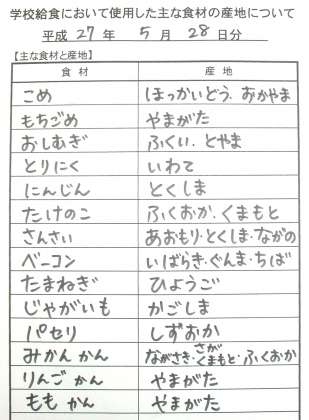 学校給食において使用した主な食材の産地について
平成 27 年 5 月 28 日分
【主な食材と産地】
食材 産地
こめ ほっかいどう、おかやま
もちごめ やまがた
おしむぎ ふくい、とやま
とりにく いわて
にんじん とくしま
たけのこ ふくおか、くまもと
さんさい あおもり・とくしま・ながの
ベーコン いばらき・ぐんま・ちば
たまねぎ ひょうご
じゃがいも かごしま
パセリ しずおか
みかんかん ながさき・さが・くまもと・ふくおか
りんごかん やまがた
ももかん やまがた